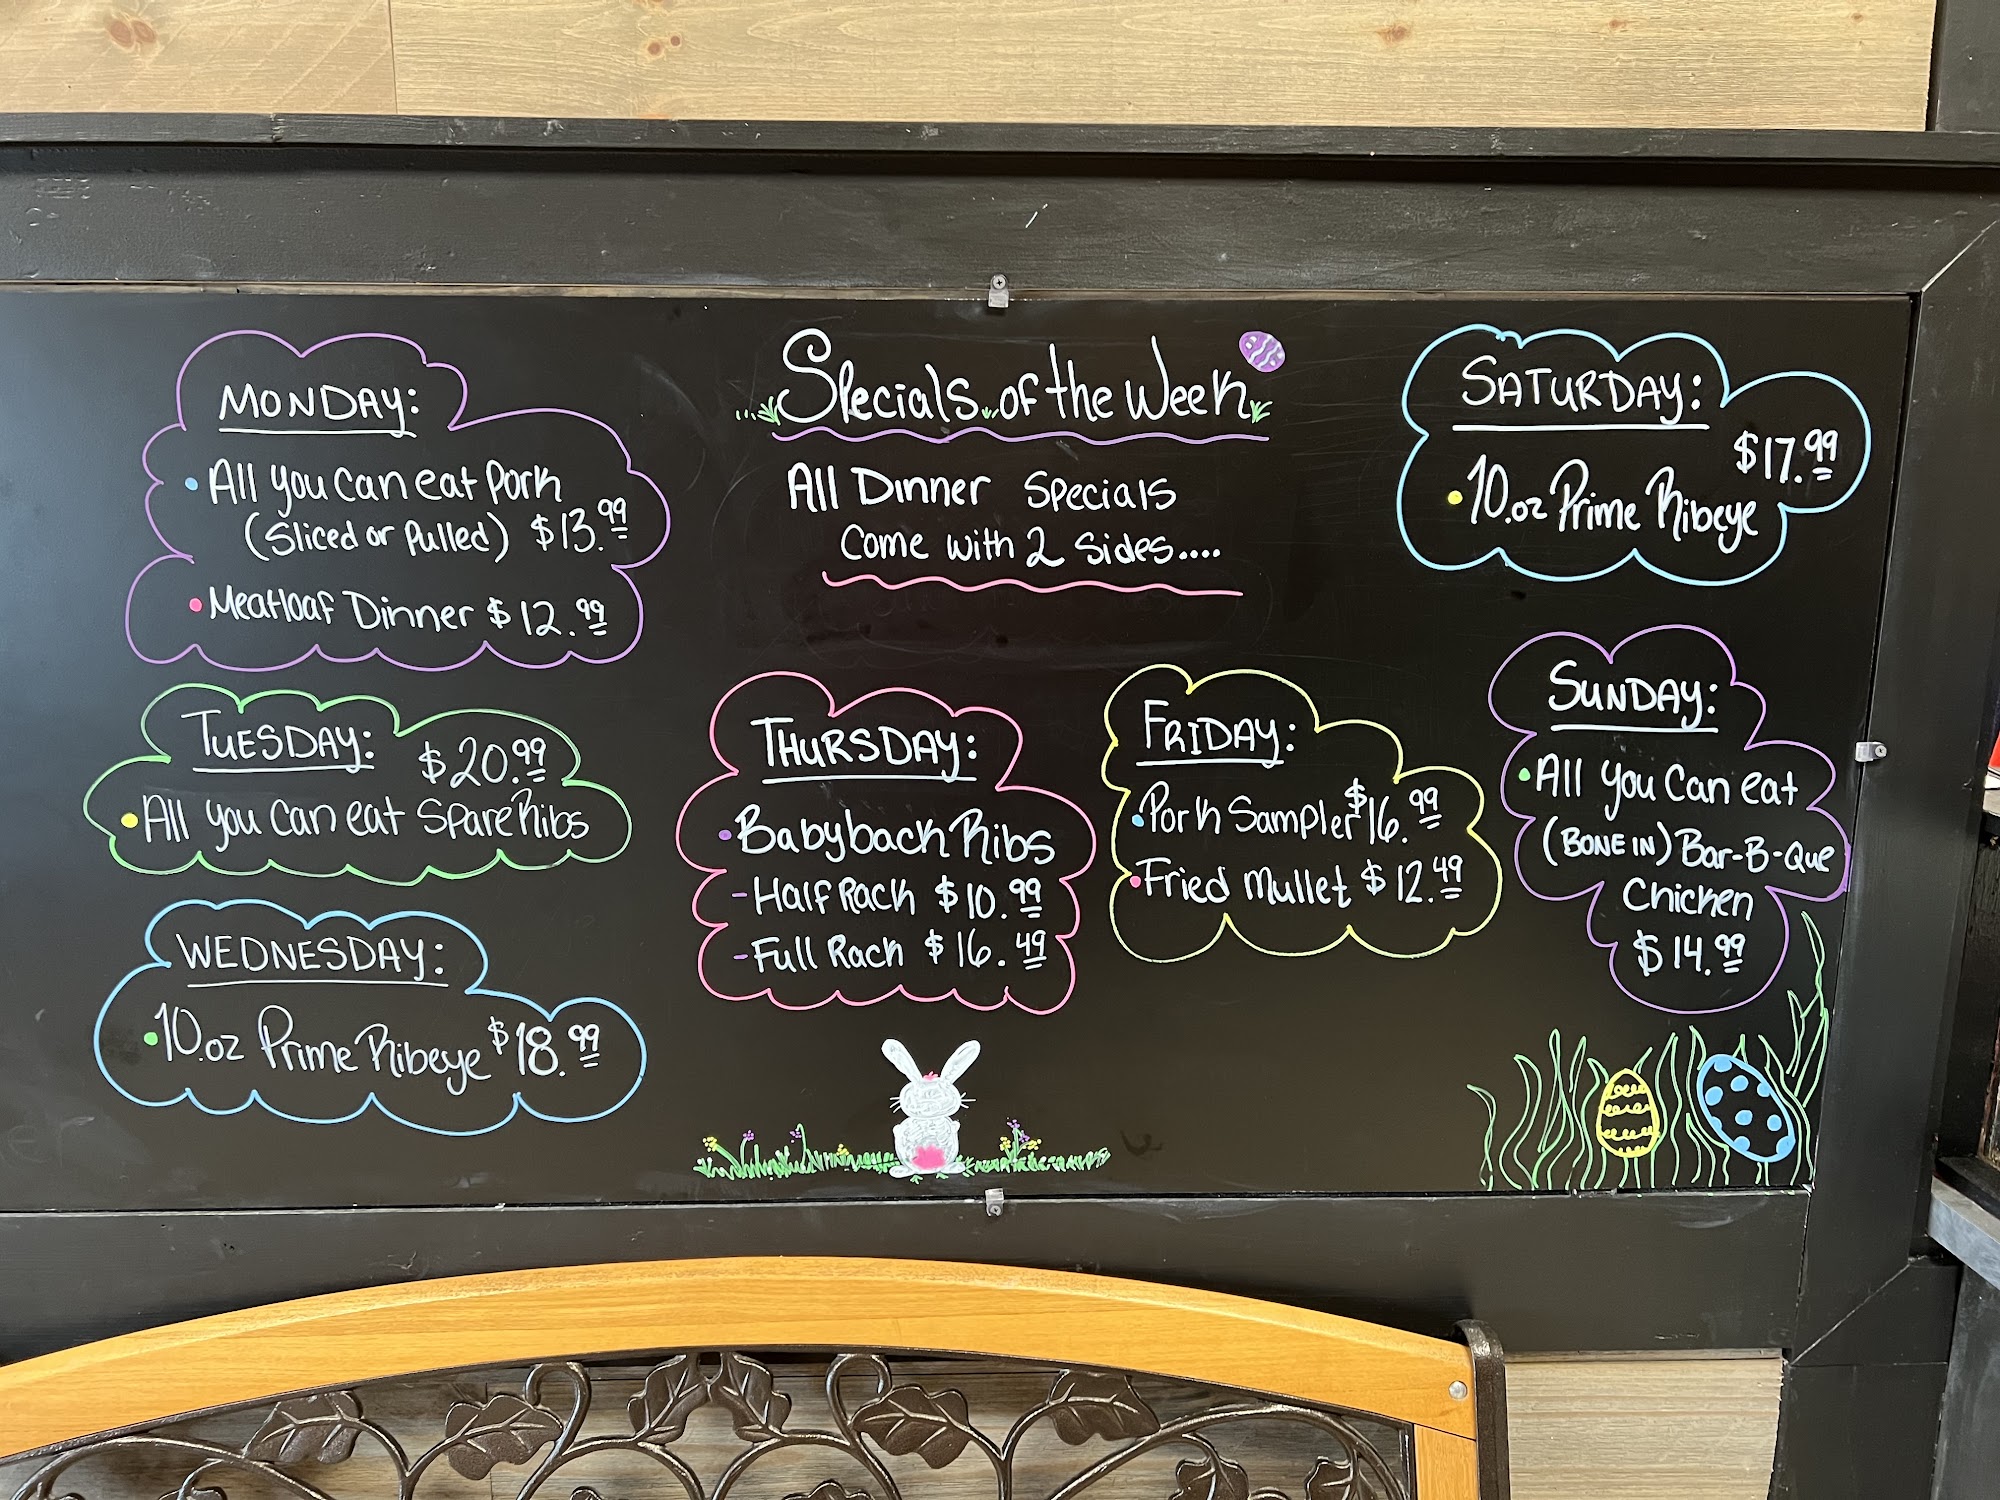 Specials of the Week
All Dinner Specials
Come with 2 Sides....
MONDAY:
• All you can eat Pork
(Sliced or Pulled) $13.99
• Meatloaf Dinner $12.99
TUESDAY:
$20.99
• All you can eat Spare Ribs
WEDNESDAY:
• 10.oz Prime Ribeye $18.99
THURSDAY:
• Babyback Ribs
- Half Rack $10.99
- Full Rack $16.49
FRIDAY:
• Pork Sampler $16.99
• Fried Mullet $12.49
SATURDAY:
$17.99
• 10.oz Prime Ribeye
SUNDAY:
• All you can eat
(BONE IN) Bar-B-Que
Chicken
$14.99